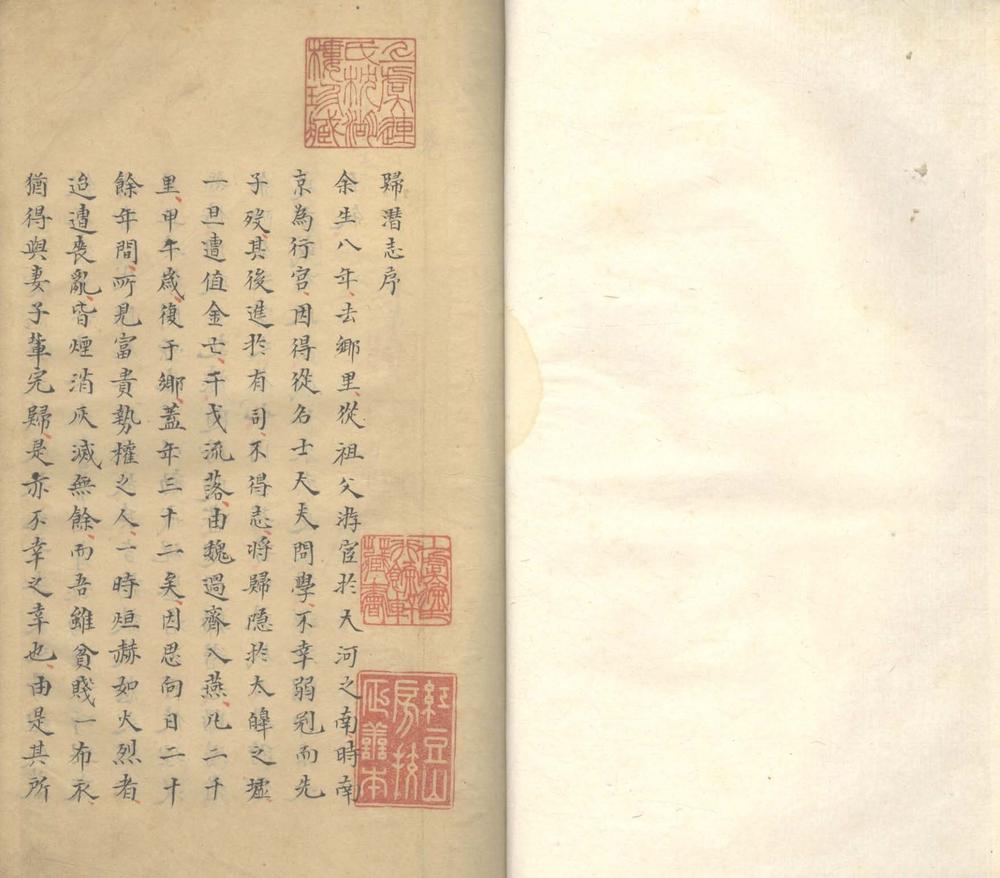 歸潛志序
余生八年、去鄉里、從祖父游宦於大河之南時南
京為行宫、因得從名士大夫問學、不幸弱冠而先
子歿、其後進於有司、不得志、將歸隱於太皥之墟、
一旦遭值金亡、干戈流落、由魏過齊入燕、凡二千
里、甲午歲、復于鄉、蓋年三十二矣、因思向日二十
餘年間、所見富貴勢權之人、一時烜赫如火烈者、
迨遭喪亂、皆煙消灰滅無餘、而吾雖貧賤一布衣
猶得與妻子輩完歸、是亦不幸之幸也、由是其所
上虞連
氏枕湖
樓珍藏
藏書
紅豆山
房挍
正善本